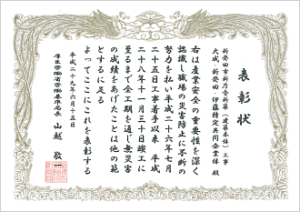 表彰状
新発田市新庁舎新築(建築本体)工事
大成・新発田・伊藤特定共同企業体殿
右は産業安全の重要性を深く
認識し職場の災害防止に不断の
努力を払い平成二十六年七月
二十五日工事着手以来平成
二十八年十一月三十日竣工に
至るまで全工期を通じ無災害
の成績をあげたことは他の範
とするに足る
よってここにこれを表彰する
平成二十九年六月十五日
厚生労働省労働基準局長 山越敬一